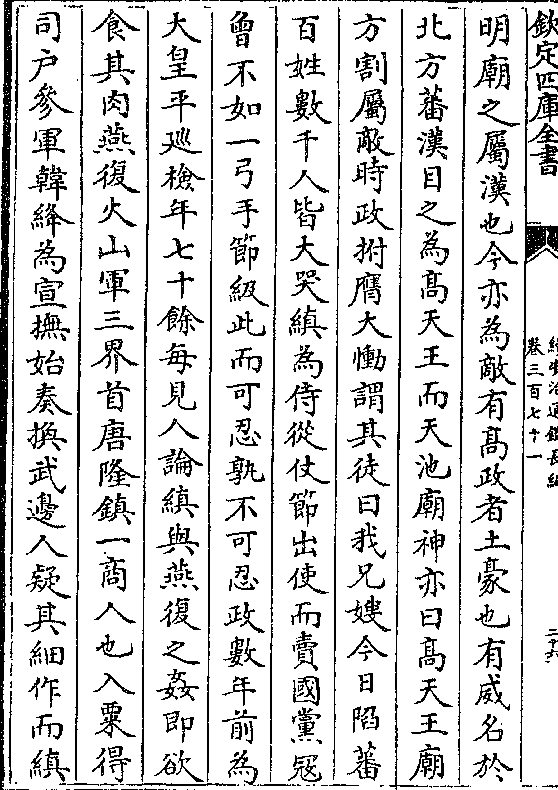 欽定四庫全書
卷三百七十一
明廟之屬漢也今亦為敵有髙政者土豪也有威名於
北方蕃漢目之為髙天王而天池廟神亦曰髙天王廟
方割屬敵時政拊膺大慟謂其徒曰我兄嫂今日陷蕃
百姓數千人皆大哭縝為侍從仗節出使而賣國黨冦
曾不如一弓手節級此而可忍孰不可忍政數年前為
大皇平廵檢年七十餘每見人論縝與燕復之姦即欲
食其肉燕復火山軍三界首唐隆鎮一商人也入粟得
司户參軍韓絳為宣撫始奏換武邊人疑其細作而縝